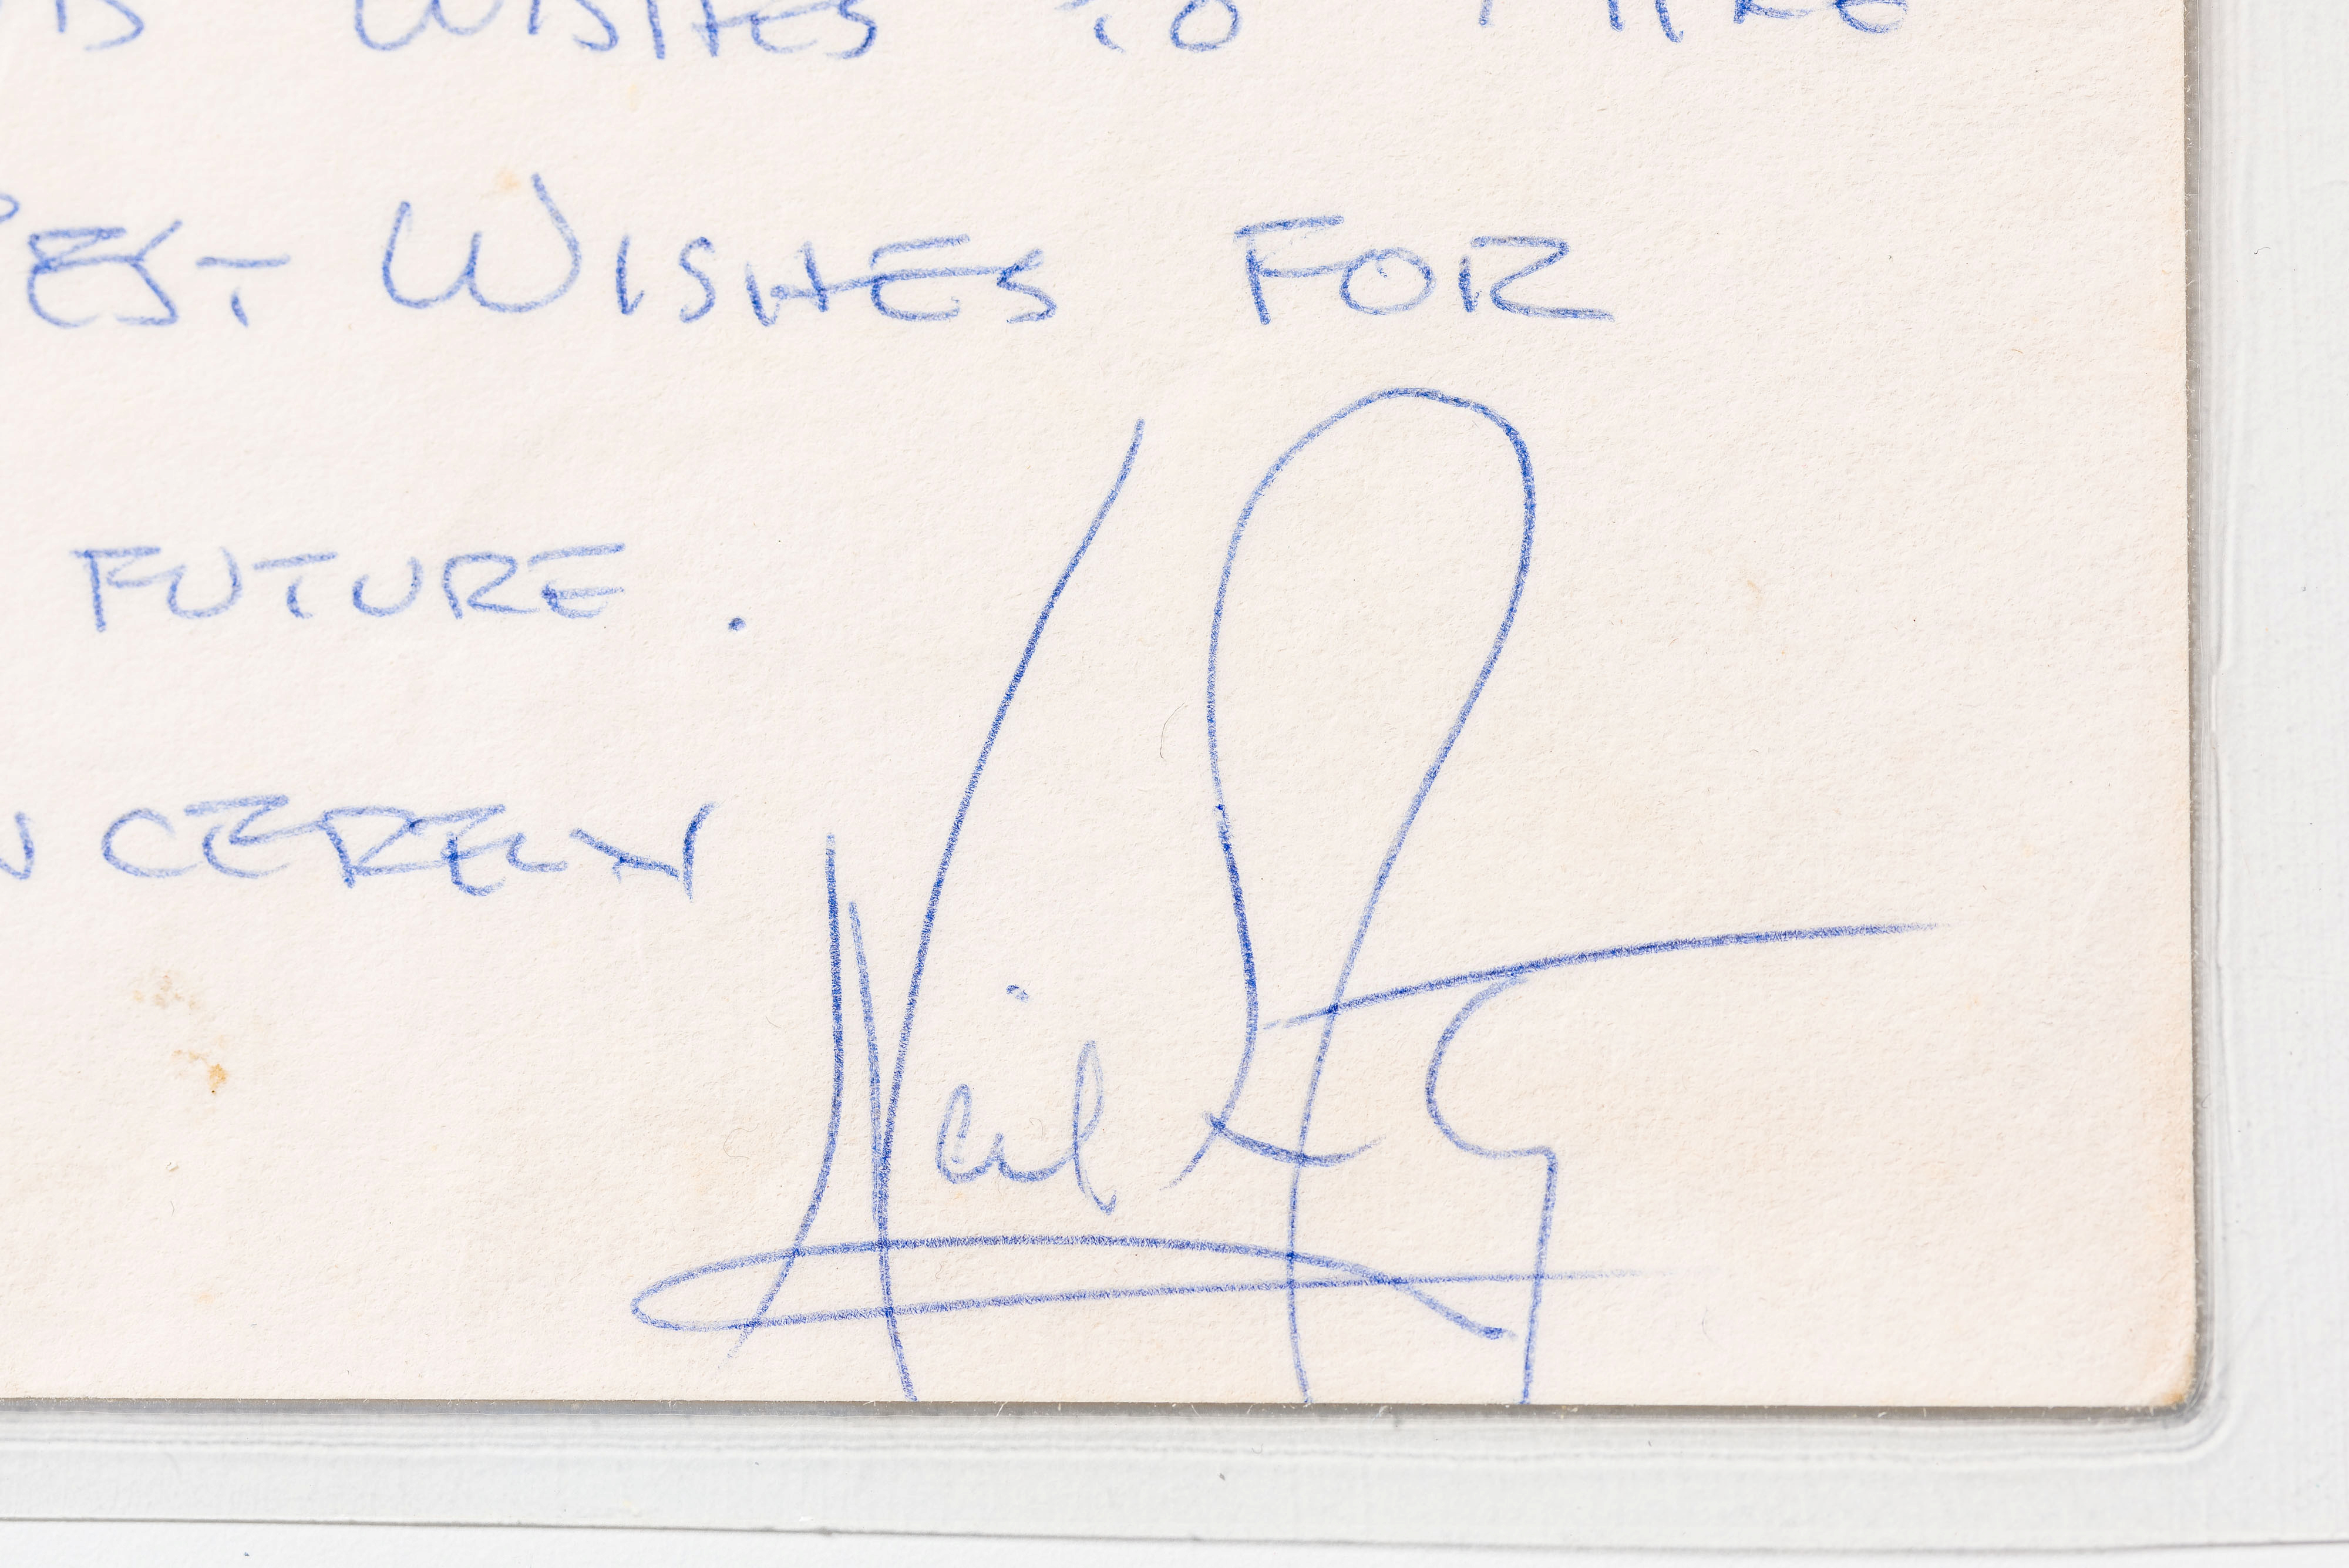 WISHES TO MIKE
BEST WISHES FOR
FUTURE.
SINCERELY
Neil